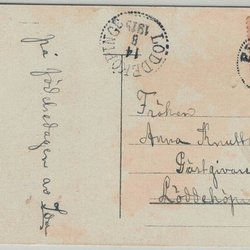 på födelsedagen av Lou
LÖDDEKÖPINGE
14
8
1915
Fröken
Anna Knutts
Gästgivare
Löddeköp